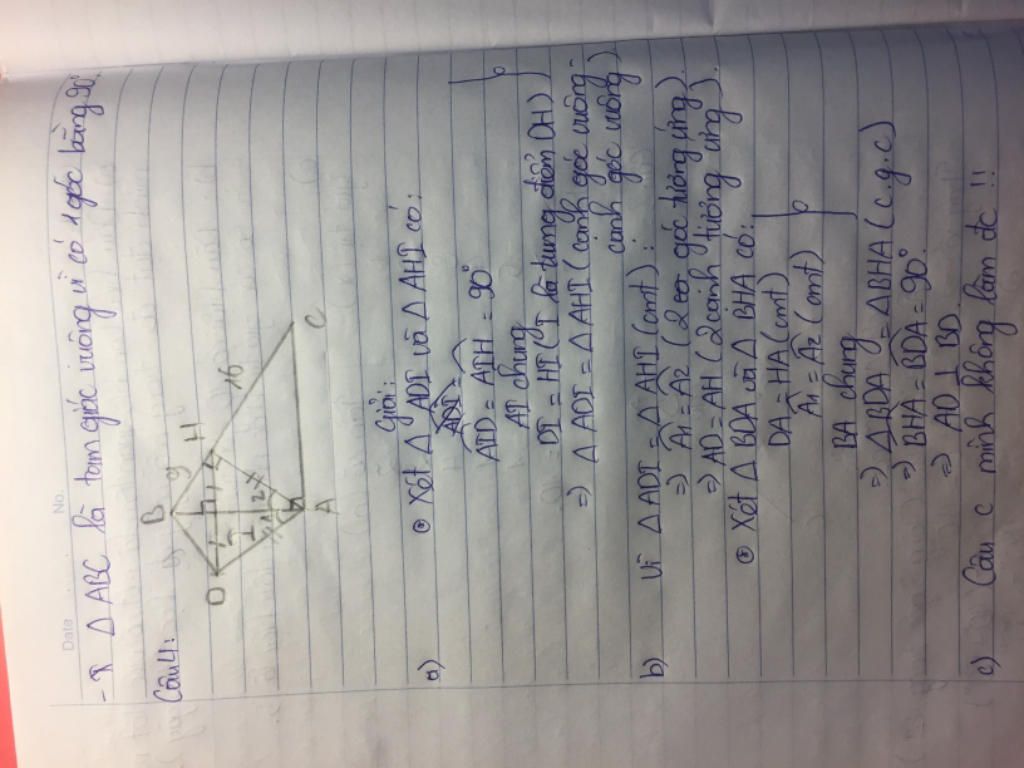 Date
No.
- ⇒ Δ ABC là tam giác vuông vì có 1 góc bằng 90°
Câu 4:
B
9
H
16
D
I
1
2
A
C
Giải:
a) * Xét Δ ADI và Δ AHI có:
AID = AIH = 90°
AI chung
DI = HI (I là trung điểm DH)
⇒ Δ ADI = Δ AHI (cạnh góc vuông -
cạnh góc vuông)
b) Vì Δ ADI = Δ AHI (cmt):
⇒ A1 = A2 (2 góc tương ứng).
⇒ AD = AH (2 cạnh tương ứng).
* Xét Δ BDA và Δ BHA có:
DA = HA (cmt)
A1 = A2 (cmt)
BA chung
⇒ Δ BDA = Δ BHA (c.g.c)
⇒ BHA = BDA = 90°
⇒ AD ⊥ BD
c) Câu c mình không làm đc !!